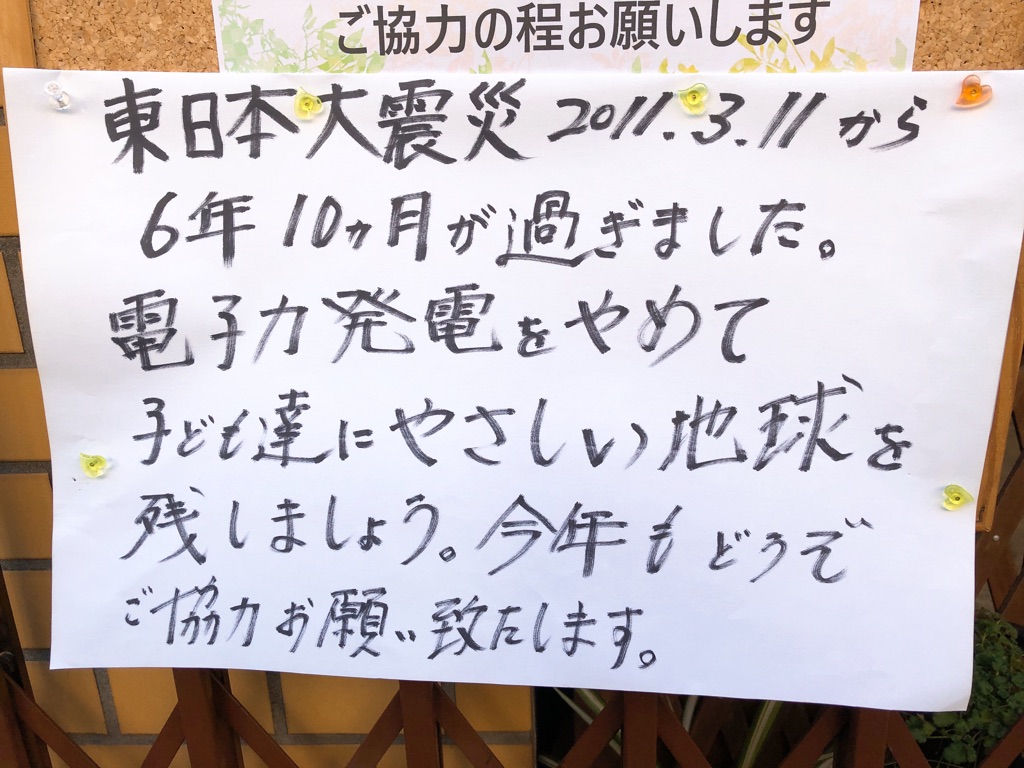 ご協力の程お願いします
東日本大震災 2011.3.11 から
6年 10ヵ月が過ぎました。
電子力発電をやめて
子ども達にやさしい地球を
残しましょう。今年もどうぞ
ご協力お願い致たします。